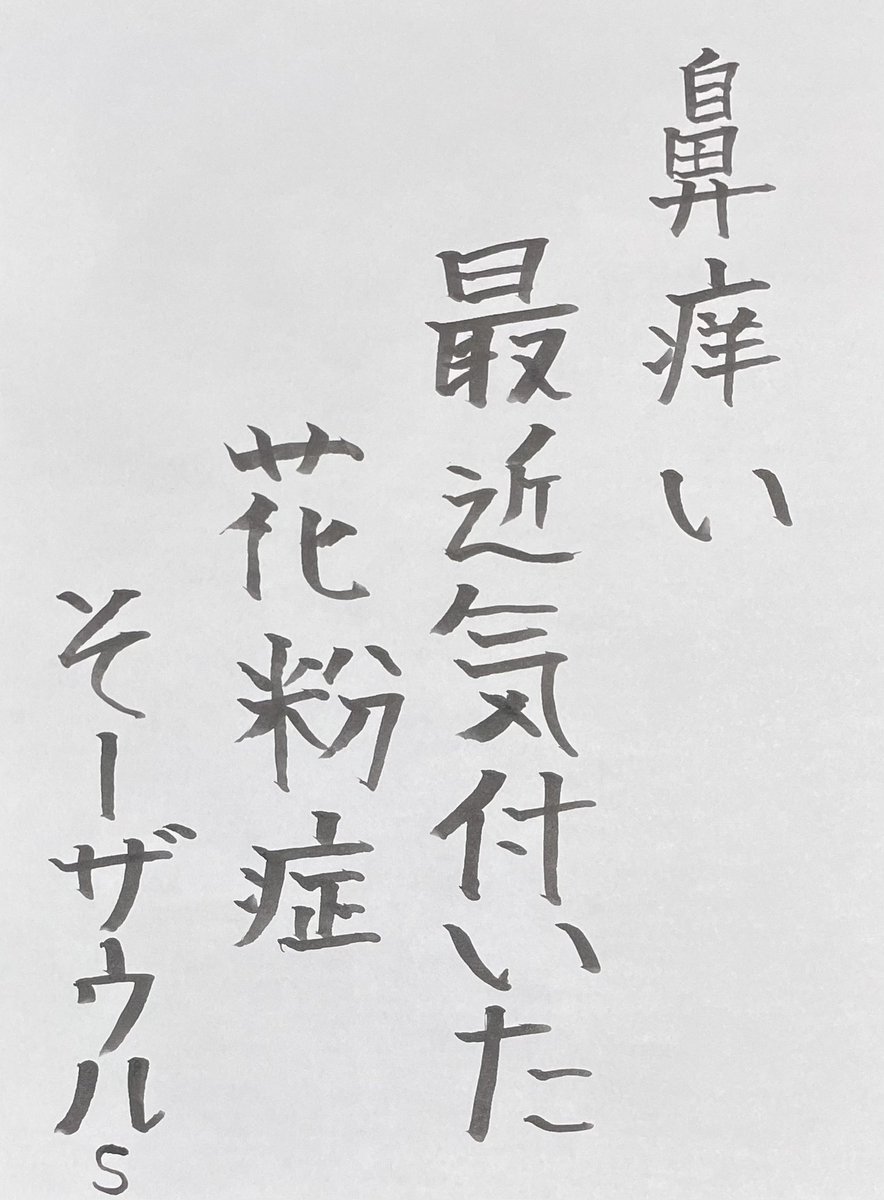 鼻痒い
最近気付いた
花粉症
そーザウルs